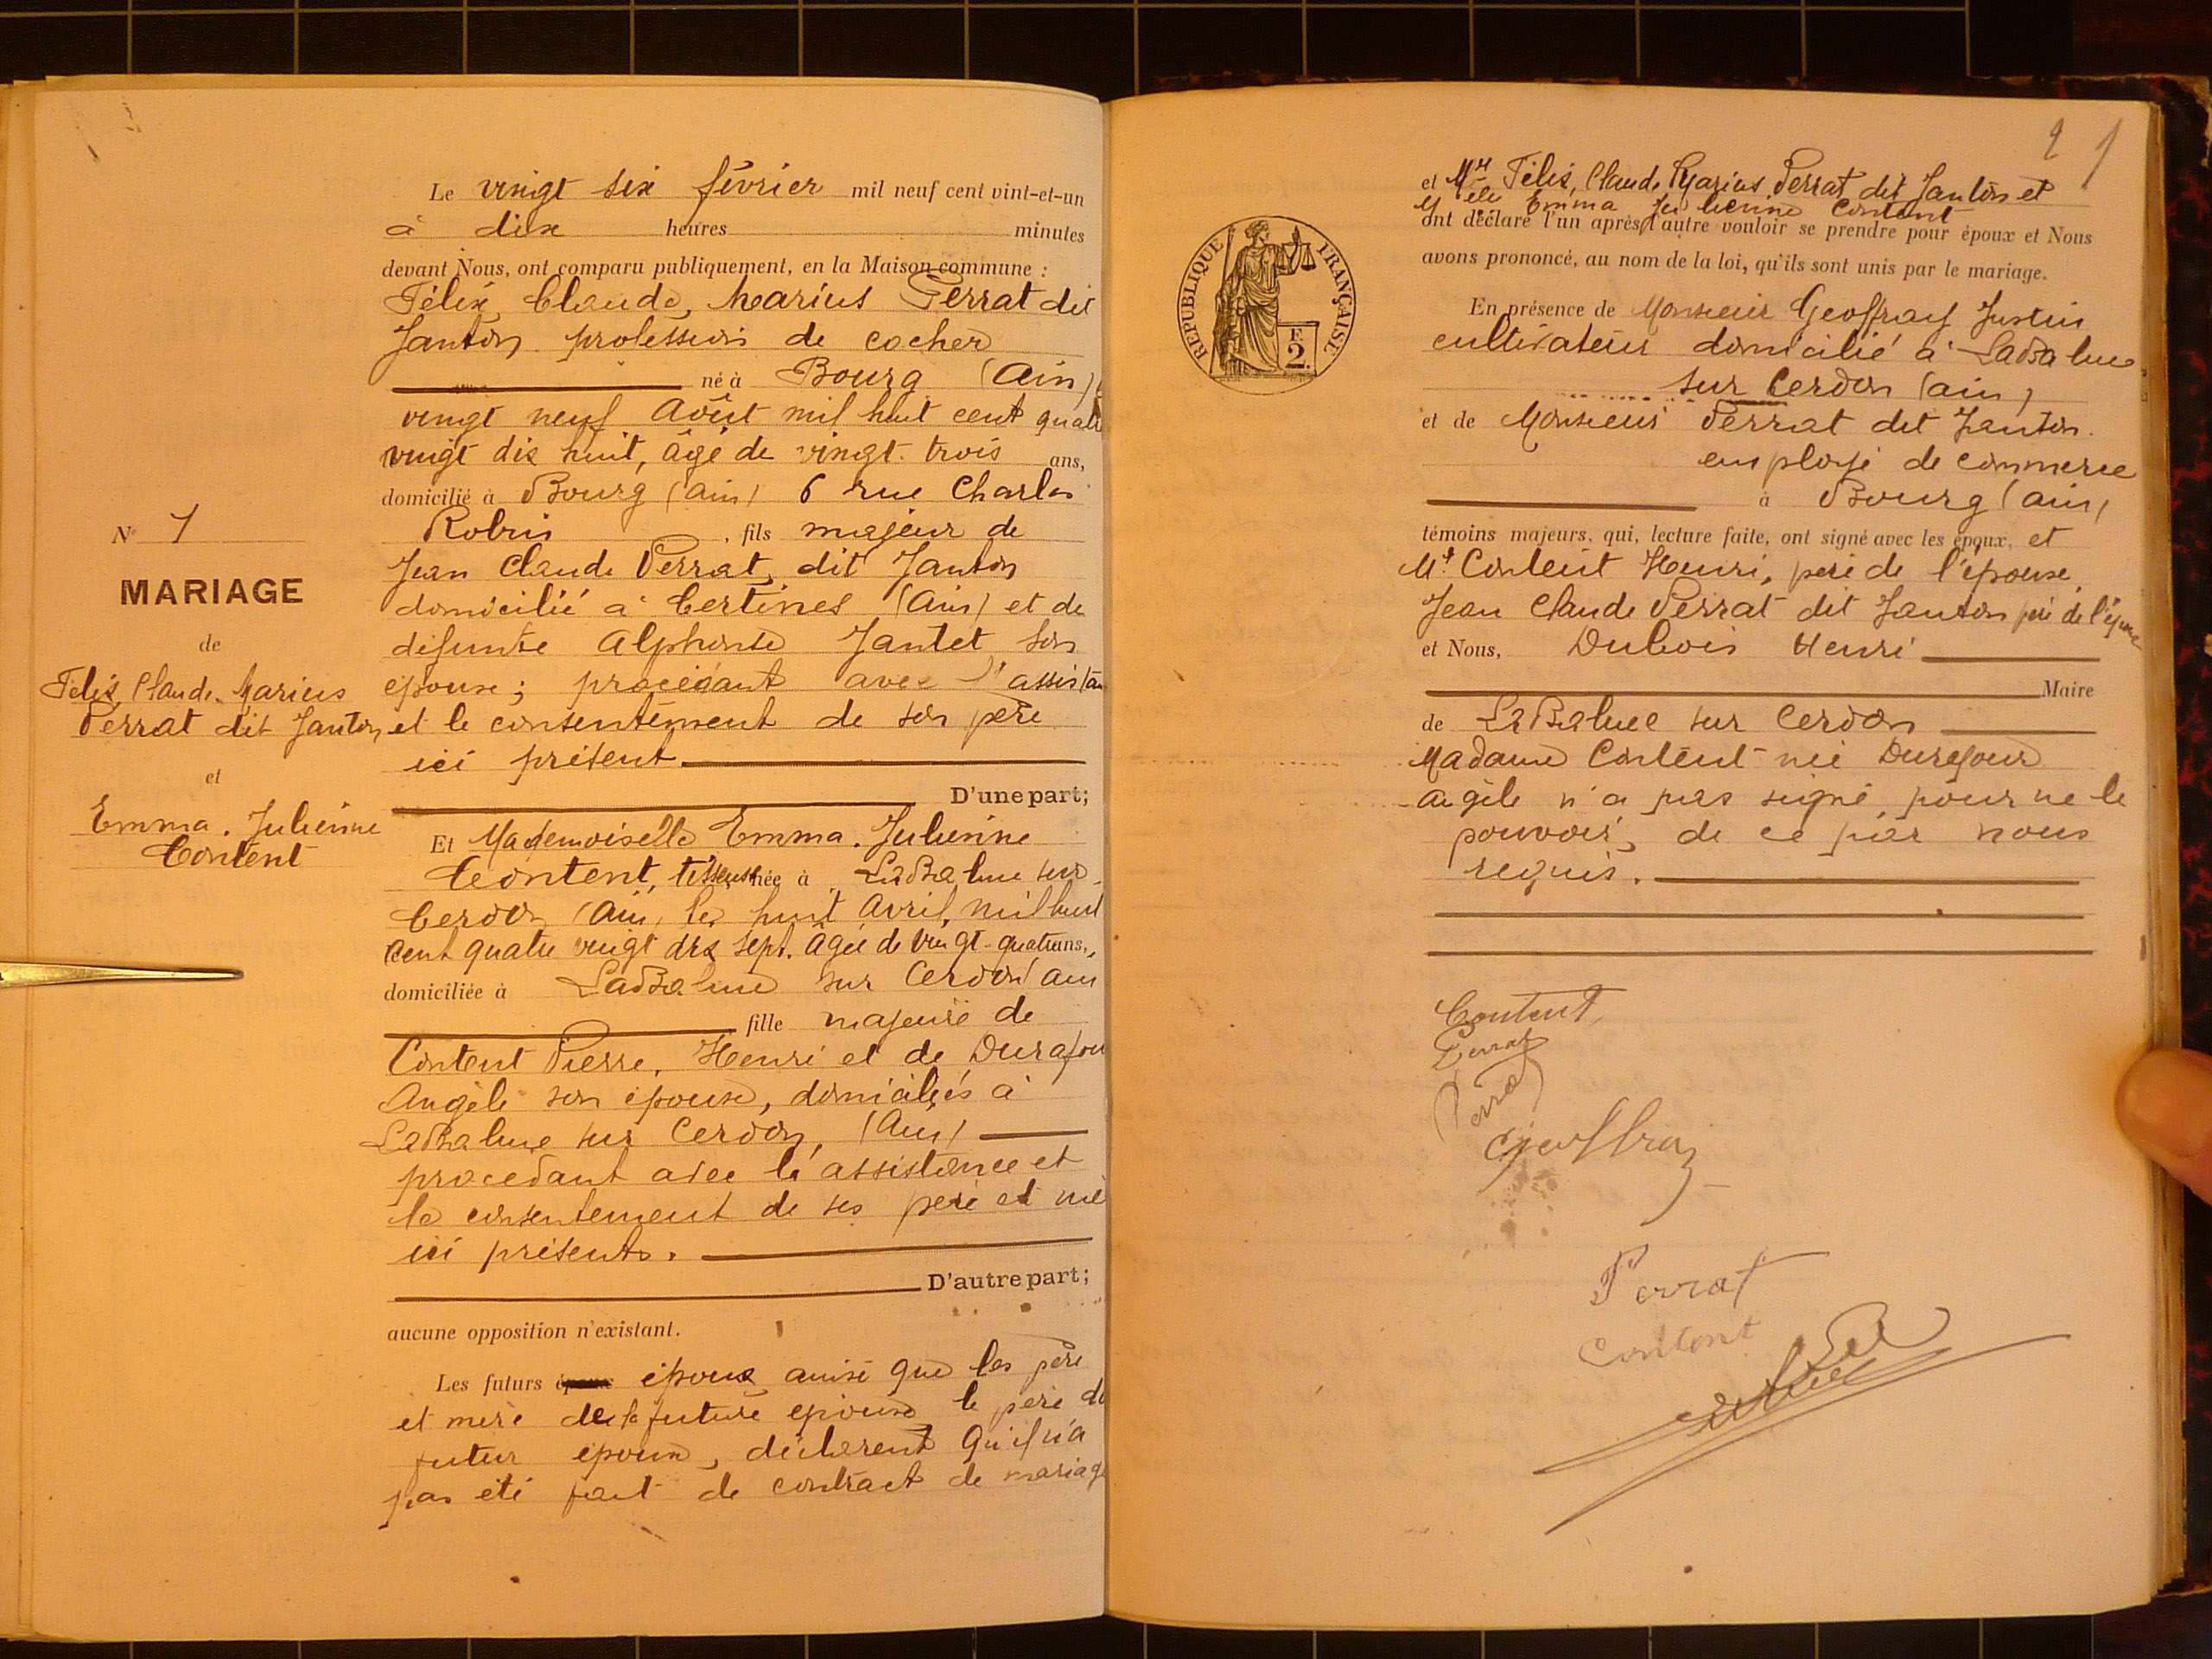 N° 1
MARIAGE
de
Félix, Claude, Marius
Perrat dit Janton
et
Emma. Julienne
Content
Le vingt six février mil neuf cent vint-et-un
à dix heures minutes
devant Nous, ont comparu publiquement, en la Maison commune :
Félix, Claude, Marius Perrat dit
Janton profession de cocher
né à Bourg (Ain)
vingt neuf Août mil huit cent quatre
vingt dix huit, âgé de vingt-trois ans,
domicilié à Bourg (Ain) 6 rue Charles
Robin, fils majeur de
Jean Claude Perrat, dit Janton
domicilié à Certines (Ain) et de
défunte Alphonse Jantet son
épouse; procédant avec l'assistan
et le consentement de son père
ici présent
D'une part;
Et Mademoiselle Emma. Julienne
Content, tisseuse née à LaBalme sur
Cerdon (Ain) le huit Avril mil huit
cent quatre vingt dix sept. âgée de vingt-quatre ans,
domiciliée à LaBalme sur Cerdon Ain
fille majeure de
Content Pierre, Henri et de Durafour
Angèle son épouse, domiciliés à
LaBalme sur Cerdon, (Ain)
procédant avec l'assistance et
le consentement de ses père et mè
ici présents.
D'autre part;
aucune opposition n'existant.
Les futurs époux époux ainsi que les père
et mère de la future épouse le père du
futur époux, déclarent qu'il n'a
pas été fait de contract de mariage
2 1
et Mr Félix, Claude, Marius Perrat dit Janton et
Melle Emma Julienne Content
ont déclaré l'un après l'autre vouloir se prendre pour époux et Nous
avons prononcé, au nom de la loi, qu'ils sont unis par le mariage.
REPUBLIQUE FRANÇAISE
E
2.
En présence de Monsieur Geoffray Justin
cultivateur domicilié à LaBalme
sur Cerdon (ain)
et de Monsieur Perrat dit Janton
employé de commerce
à Bourg (ain)
témoins majeurs, qui, lecture faite, ont signé avec les époux, et
Mr Content Henri, père de l'épouse,
Jean Claude Perrat dit Janton père de l'époux
et Nous, Dubois Henri
Maire
de LaBalme sur Cerdon
Madame Content née Durafour
Angèle n'a pas signé pour ne le
pouvoir, de ce par nous
requis.
Content
Perrat
Perrat
Geoffray
Perrat
Content